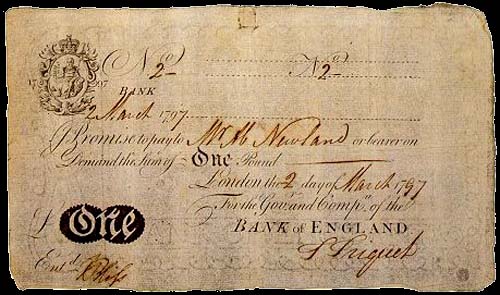 17 97
Nº 2 Nº 2
BANK
2 March 1797
I Promise to pay to Mr Ab Newland or bearer on
Demand the Sum of One Pound
London the 2 day of March 1797
For the Govr. and Compa. of the
£ One BANK of ENGLAND
Entd.